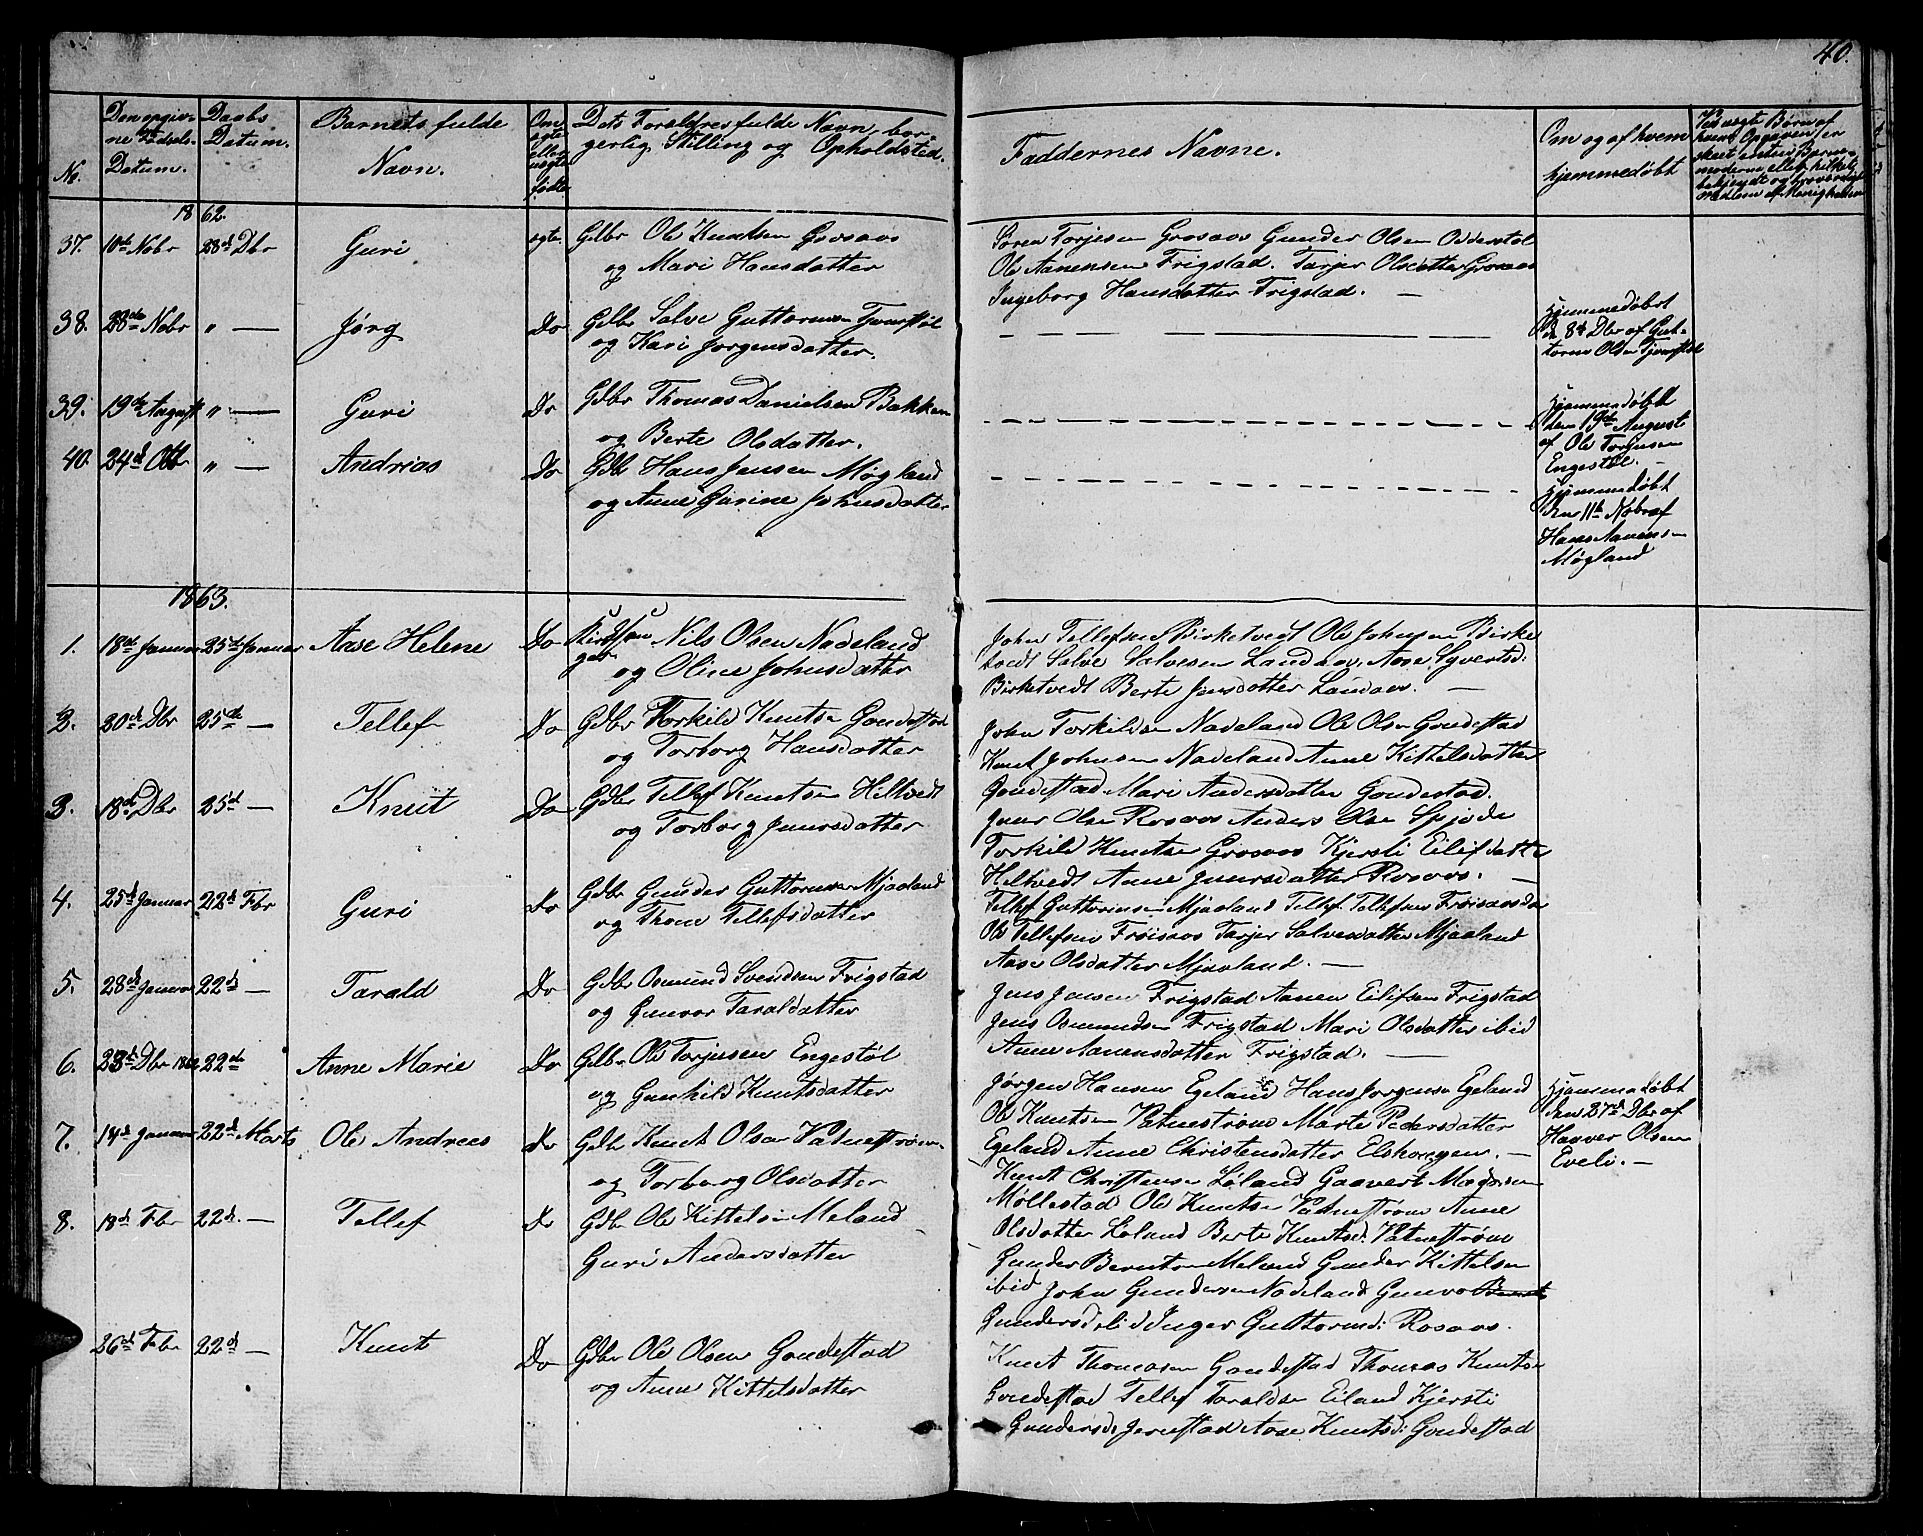 40.
No.
Den opgiv-
ne Fødsels-
Datum.
Daabs
Datum.
Barnets fulde
Navn.
Om
ægte
eller
uægte
født
Dets Forældres fulde Navn, bor-
gerlig Stilling og Opholdsted.
Faddernes Navne.
Om og af hvem
hjemmedøbt
1862.
37. 10de Nobr 28de Dbr Guri ægte Gdbr Ole Knudsen Grosaas
og Mari Hansdatter
Søren Torjesen Grosaas Gunder Olsen Odderstøl
Ole Aanensen Frigstad. Tarjer Olsdatter Grosaas
Ingeborg Hansdatter Frigstad. —
38. 28de Nobr " — Jørg Do Gdbr Salve Guttormsen
og Kari Jorgensdatter.
Hjemmedøbt
d 8de Dbr af Gut-
torm Olsen
39. 19de August " — Guri Do Gdbr Thomas Danielsen Bakken
og Berte Olsdatter.
Hjemmedøbt
den 19de August
af Ole Torjusen
Engestøl. —
40. 24de Otb " — Andreas Do Gdbr Hans Jensen Møgland
og Anne Gurine Johnsdatter
Hjemmedøbt
den 11te Nobr af
Hans Aanensen
Møgland
1863.
1. 18de Januar 25de Januar Aase Helene Do Nils Olsen Nadeland
og Oline Johnsdatter
John Tellefsen Birketvedt Ole Johnsen Birke
tvedt Salve Salvesen Landaas, Aase Syvertsd:
Birketvedt Berte Jensdatter Landaas. —
2. 20de Dbr 25de — Tellef Do Gdbr Torkild Knutsen Gondestad
og Torborg Hansdatter
John Torkildsen Nadeland Ole Olsen Gondestad
Knut Johnsen Nadeland Anne Kittelsdatter
Gondestad Mari Andersdatter Gondestad.
3. 18de Dbr 25de — Knut Do Gdbr Tellef Knutsen Heltvedt
og Torborg Juursdatter
Juur Olsen Rosaas Anders Olsen Spjode
Torkild Knutsen Grosaas Kjersti Eilifdatter
Heltvedt Anne Juursdatter Rosaas. —
4. 25de Januar 22de Fbr Guri Do Gdbr Gunder Guttormsen Mjaaland
og Thone Tellefsdatter
Tellef Guttormsen Mjaaland Tellef Tellefsen
Ole Tellefsen Froisaas Tarjer Salvesdatter Mjaaland
Aase Olsdatter Mjaaland. —
5. 28de Januar 22de — Tarald Do Gdbr Osmund Svendsen Frigstad
og Gunvor Taraldsdatter
Jens Jensen Frigstad Aanen Eilifsen Frigstad
Jens Osmundsen Frigstad Mari Olsdatter ibid
Anne Aanensdatter Frigstad. —
6. 23de Dbr 1862 22de Anne Marie Do Gdbr Ole Torjusen Engestøl
og Gunhild Knutsdatter
Jørgen Hansen Egeland Hans Jørgensen Egeland
Ole Knutsen Vatnestrøm Marte Pedersdatter
Egeland Anne Christensdatter Elshougen. —
Hjemmedøbt
den 27de Dbr af
Haaver Olsen
Eveli. —
7. 14de Januar 22de Marts Ole Andreas Do Gdbr Knut Olsen Vatnestrøm
og Torborg Olsdatter
Knut Christensen Løland Gaavert
Møllestad Ole Knutsen Vatnestrøm Anne
Olsdatter Løland Berte Knutsd: Vatnestrøm
8. 18de Fbr 22de — Tellef Do Gdbr Ole Kittelsen Meland
Guri Andersdatter
Gunder Berntsen Meland Gunder Kittelsen
ibid John Gundersen Nadeland Gunvor
Gundersd ibid Inger Guttormsd: Rosaas.
26de Febr 22de — Knut Do Gdbr Ole Olsen Gondestad
og Anne Kittelsdatter
Knut Thomasen Gondestad Thomas Knutsen
Gondestad Tellef Taraldsen Eiland Kjersti
Gundersd: Jerestad Aase Knutsd: Gondestad